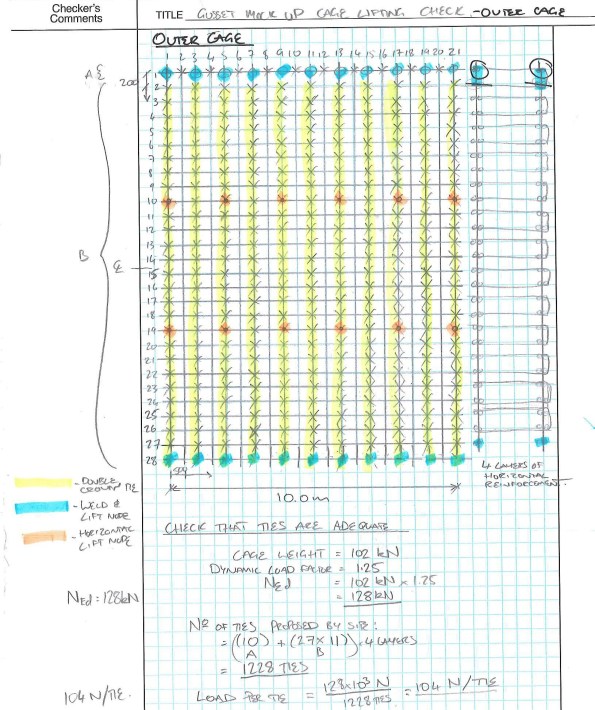 Checker's
Comments
TITLE GUSSET MOCK UP CAGE LIFTING CHECK - OUTER CAGE
OUTER CAGE
1 2 3 4 5 6 7 8 9 10 11 12 13 14 15 16 17 18 19 20 21
A
200
1
2
3
4
5
6
7
8
9
10
11
12
13
14
15
16
17
18
19
20
21
22
23
24
25
26
27
28
B
10.0m
4 LAYERS OF
HORIZONTAL
REINFORCEMENT.
- DOUBLE
CROWN TIE
- WELD &
LIFT NODE
- HORIZONTAL
LIFT NODE
CHECK THAT TIES ARE ADEQUATE
CAGE WEIGHT = 102 kN
DYNAMIC LOAD FACTOR = 1.25
NEd = 102 kN x 1.25
= 128kN
NEd = 128kN
Nº OF TIES PROPOSED BY SITE:
= ((10) + (27x11)).4 LAYERS
A B
= 1228 TIES
104 N/TIE.
LOAD PER TIE = 128x10³ N / 1228 TIES = 104 N/TIE